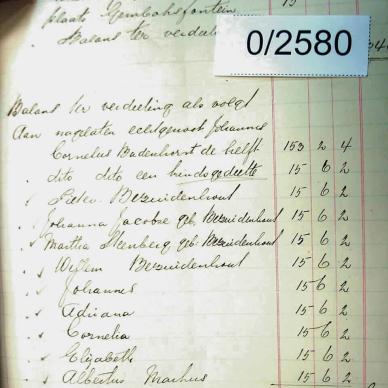 plaats Gembokfontein 15
Balans ter verdeeling
0/2580
Balans ter verdeeling als volgt
Aan nagelaten echtgenoot Johannes
Cornelius Badenhorst de helft 153 2 4
dito dito een kindsgedeelte 15 6 2
Bezuidenhout 15 6 2
Johanna Jacoba geb. Bezuidenhout 15 6 2
Martha Steenberg geb. Bezuidenhout 15 6 2
Willem Bezuidenhout 15 6 2
Johannes 15 6 2
Adriana 15 6 2
Cornelia 15 6 2
Elizabeth 15 6 2
Albertus Machus 15 6 2